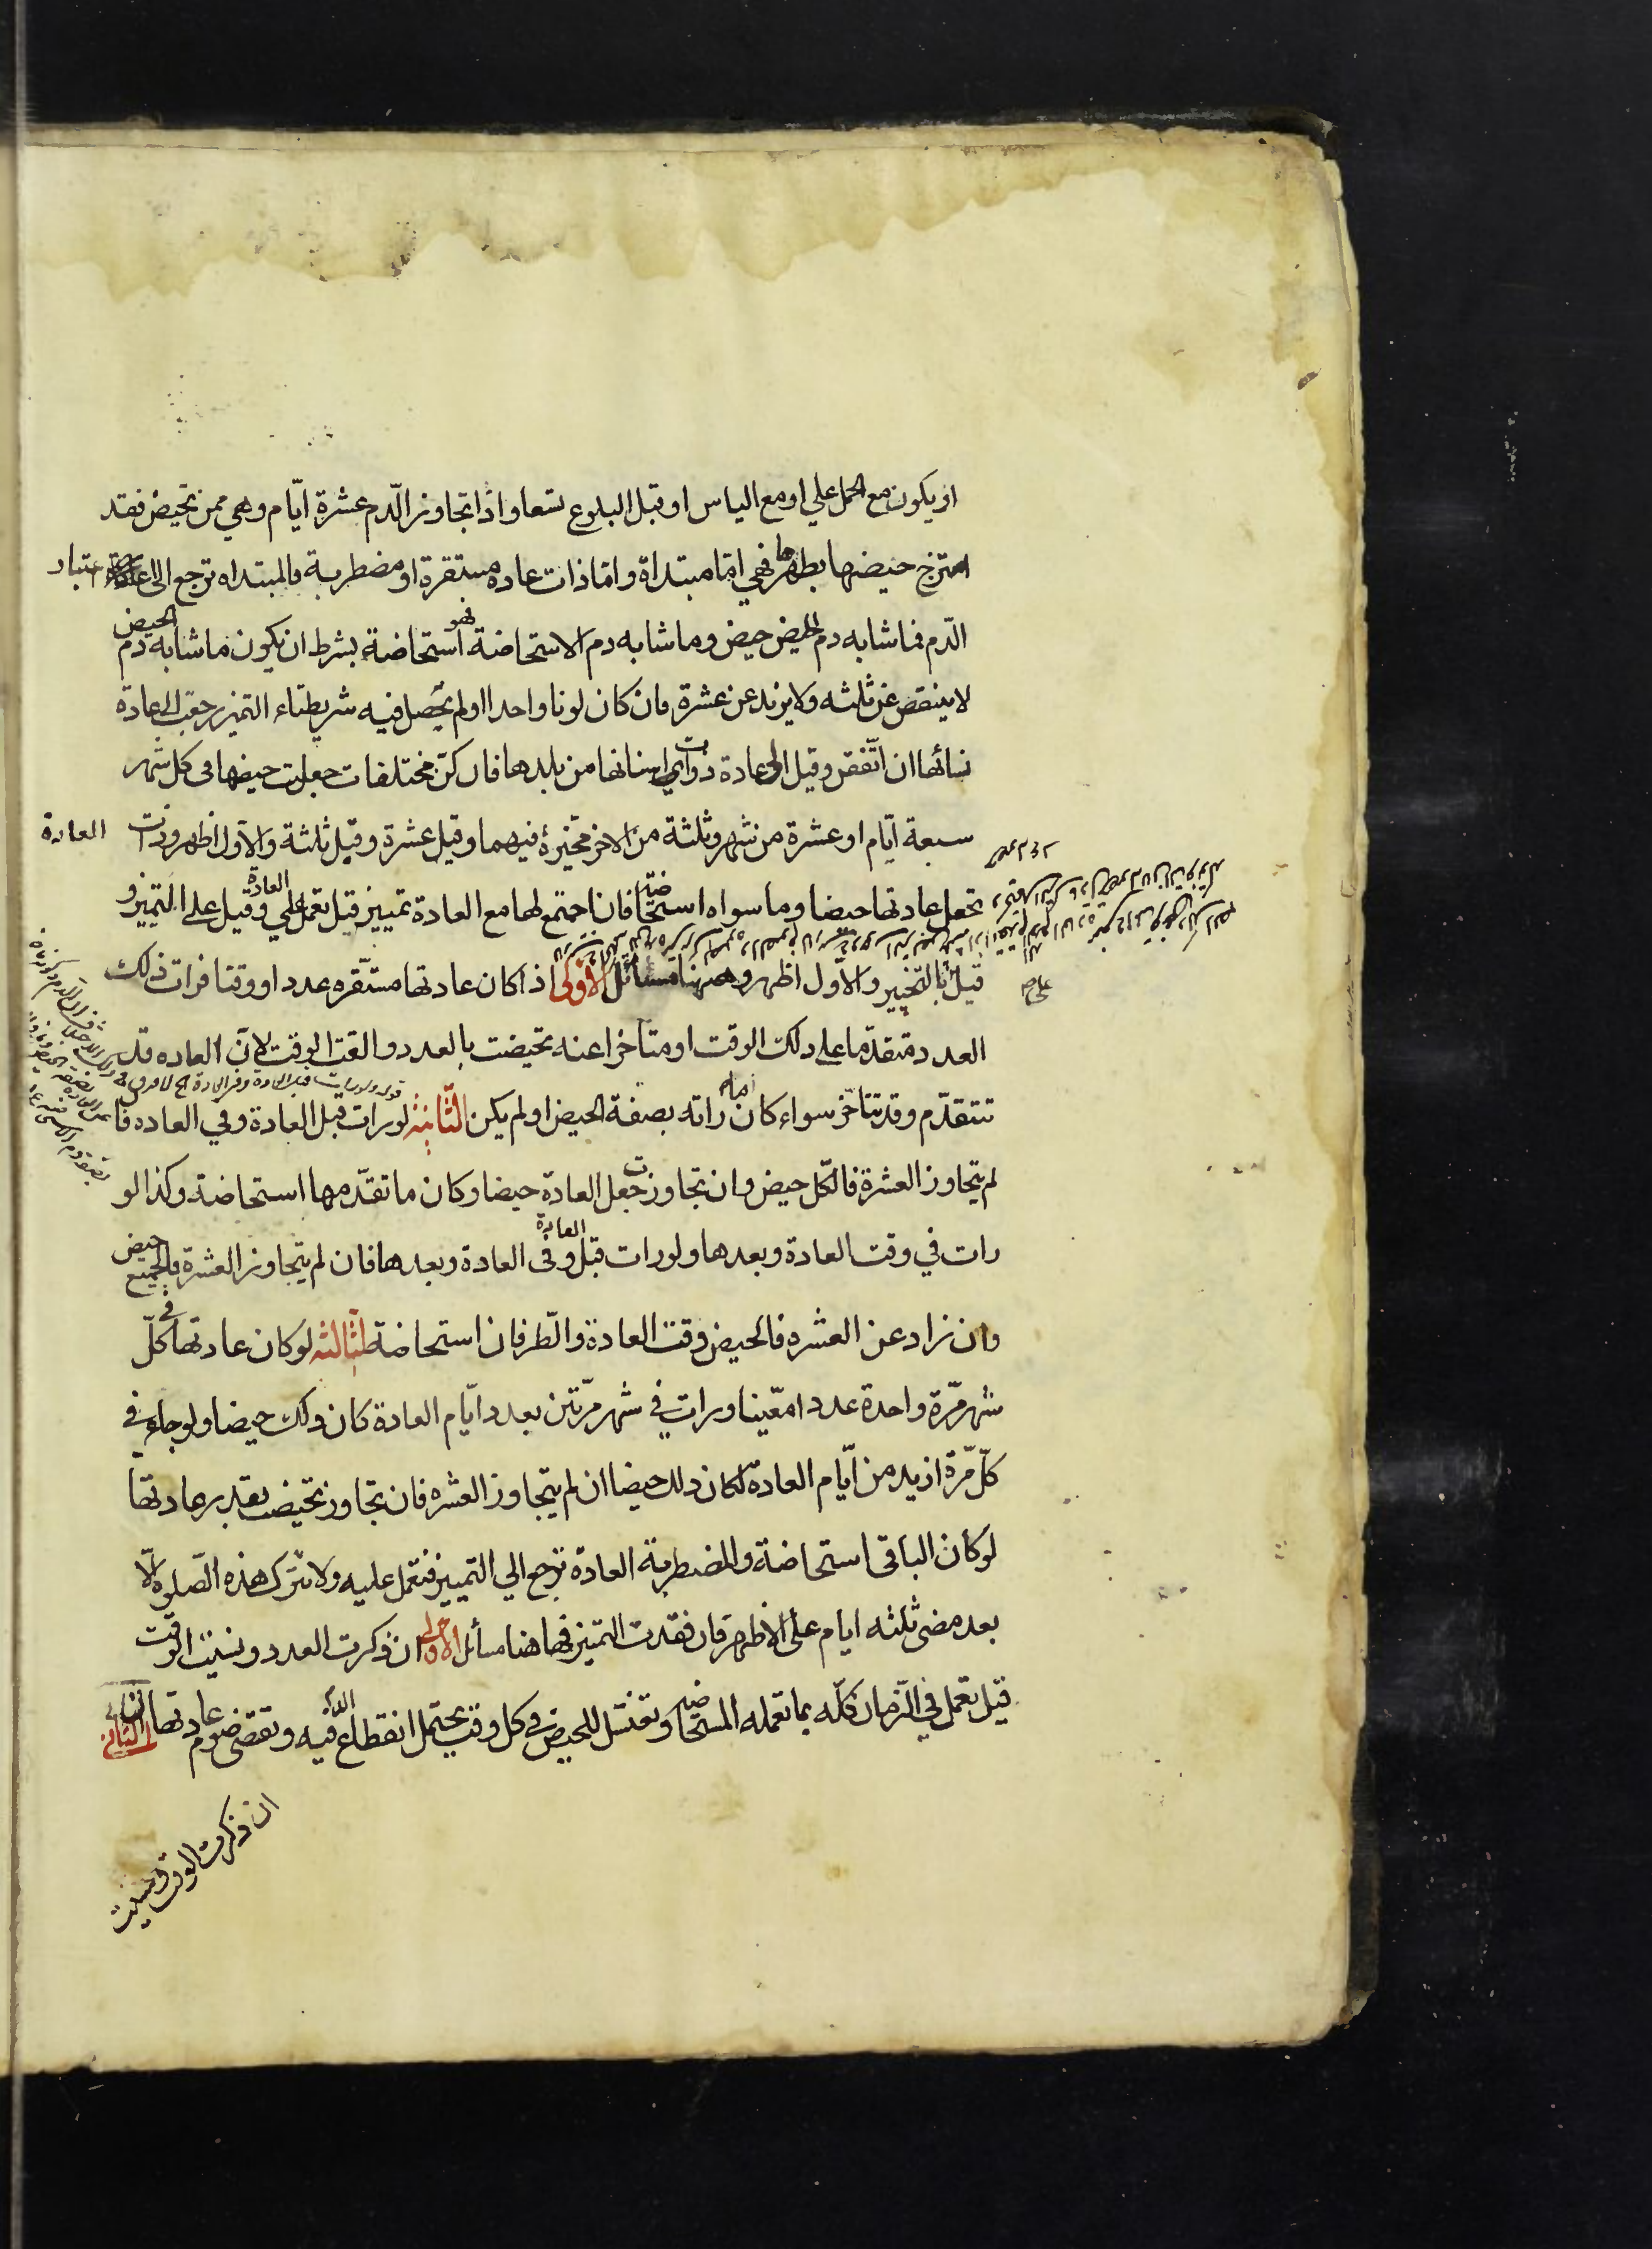 او يكون مع الحمل علي او مع الياس او قبل البلوغ تسعا واذا تجاوز الدّم عشرة ايّام وهي ممن تحيض فقد
امتزج حيضها بطهرها فهي امّا مبتداة وامّا ذات عاده مستقرة او مضطربة فالمبتداه ترجع الى اعتبار
الدّم فما شابه دم الحيض حيض وما شابه دم الاستحاضة فهو استحاضة بشرط ان يكون ما شابه دم الحيض
لا ينقص عن ثلثه ولا يزيد عن عشرة فان كان لونا واحدا او لم يحصل فيه شريطتاء التميز رجعت الى عادة
نسائها ان اتّفقن وقيل الى عادة ذوات اسنانها من بلدها فان كنّ مختلفات جعلت حيضها في كل شهر
سبعة ايّام او عشرة من شهر وثلثة من الاخر مخيّرة فيهما وقيل عشرة وقيل ثلثة والاول اظهر وذات العادة
تجعل عادتها حيضا وما سواه استحاضة فان اجتمع لها مع العادة تمييز قيل تعمل علي العادة وقيل على التميز و
قيل بالتخيير والاول اظهر وههنا مسائل الاولى اذا كان عادتها مستقره عددا ووقتا فرات ذلك
العدد متقدّما على ذلك الوقت او متاخرا عنه تحيضت بالعدد والقت الوقت لان العاده قد
تتقدّم وقد تتاخّر سواء كان ما راته بصفة الحيض او لم يكن الثانية لو رات قبل العادة وفي العاده فا
لم يتجاوز العشرة فالكّل حيض وان تجاوز جعلت العادة حيضا وكان ما تقدّمها استحاضة وكذا لو
رات في وقت العادة وبعدها ولو رات قبل العادة وفى العادة وبعدها فان لم يتجاوز العشرة فالجميع حيض
وان زاد عن العشره فالحيض وقت العادة والطّرفان استحاضة الثالثه لو كان عادتها في كلّ
شهر مرّة واحدة عددا معّينا ورات في شهر مرّتين بعدد ايّام العادة كان ذلك حيضا ولو جاء في
كلّ مرّة ازيد من ايّام العادة لكان ذلك حيضا ان لم يتجاوز العشره فان تجاوز تحيضت بقدر عادتها
لو كان الباقى استحاضة والمضطربة العادة ترجع الي التمييز فتعمل عليه ولا تترك هذه الصّلوة الّا
بعد مضى ثلثه ايام على الاظهر فان فقدت التميز فها هنا مسائل الاولى ان ذكرت العدد ونسيت الوقت
قيل تعمل في الزمان كلّه بما تعمله المستحاضة وتغتسل للحيض في كل وقت يحتمل انقطاع الدم فيه وتقضى صوم عادتها الثانى
ان ذكرت الوقت ونسيت